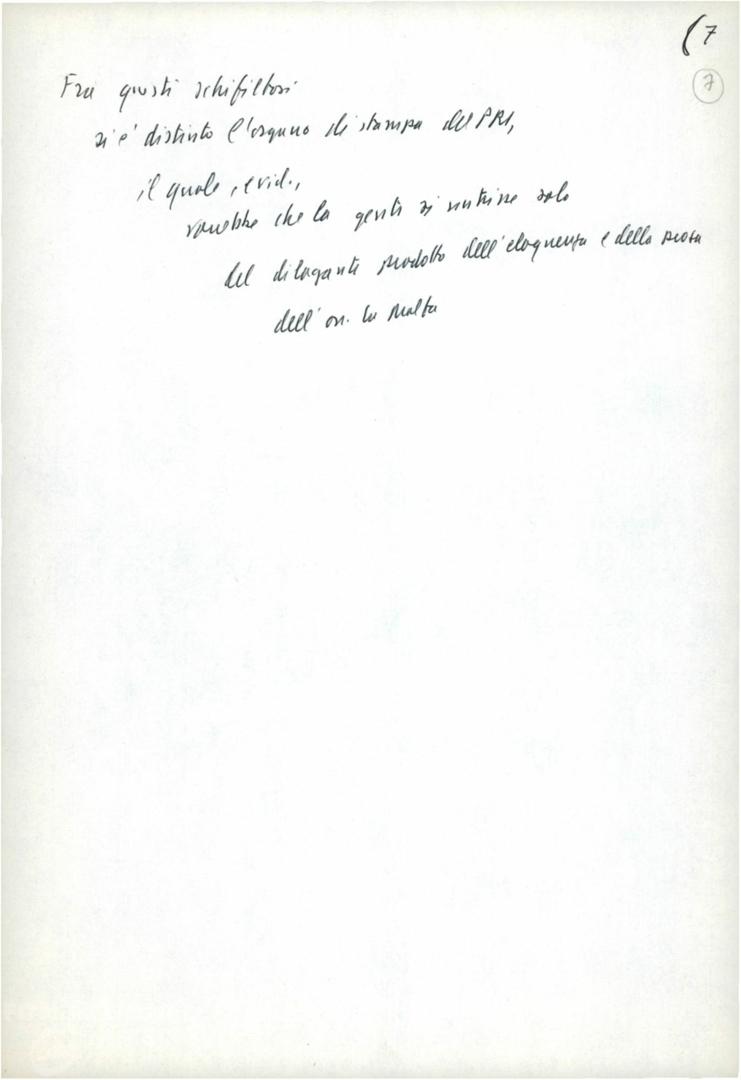 (7
7
Fra questi schifiltosi
si è distinto l'organo di stampa del PRI,
il quale, evid.,
vorrebbe che la gente si nutrisse solo
del dilagante prodotto dell'eloquenza e della prosa
dell'on. La Malfa